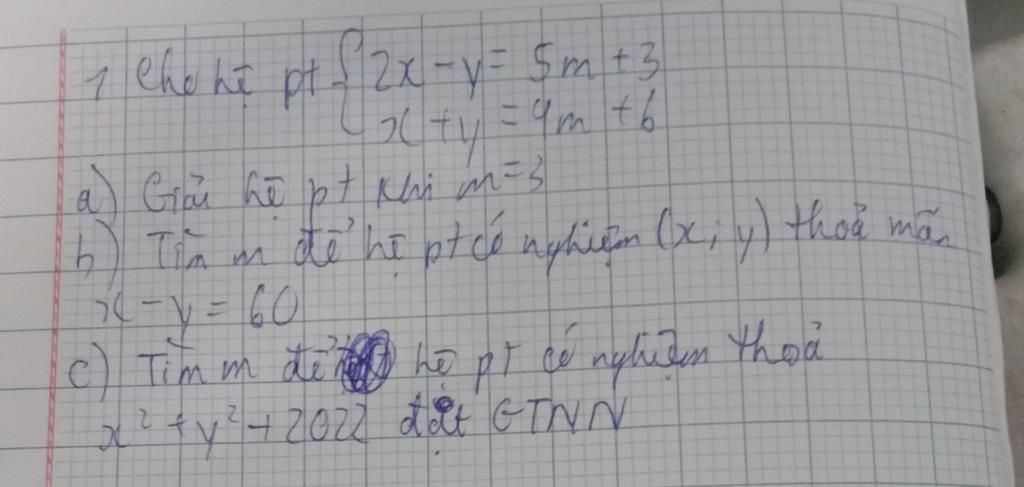 1 Cho hệ pt { 2x - y = 5m + 3
x + y = 4m + 6
a) Giải hệ pt khi m = 3
b) Tìm m để hệ pt có nghiệm (x; y) thoả mãn
x - y = 60
c) Tìm m để hệ pt có nghiệm thoả
x² + y² + 2022 đạt GTNN